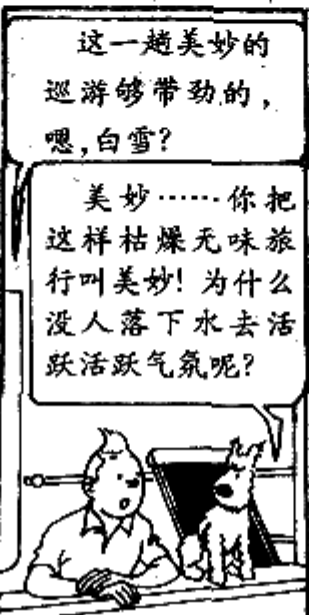 这一趟美妙的
巡游够带劲的，
嗯，白雪？
美妙……你把
这样枯燥无味旅
行叫美妙！为什么
没人落下水去活
跃活跃气氛呢？